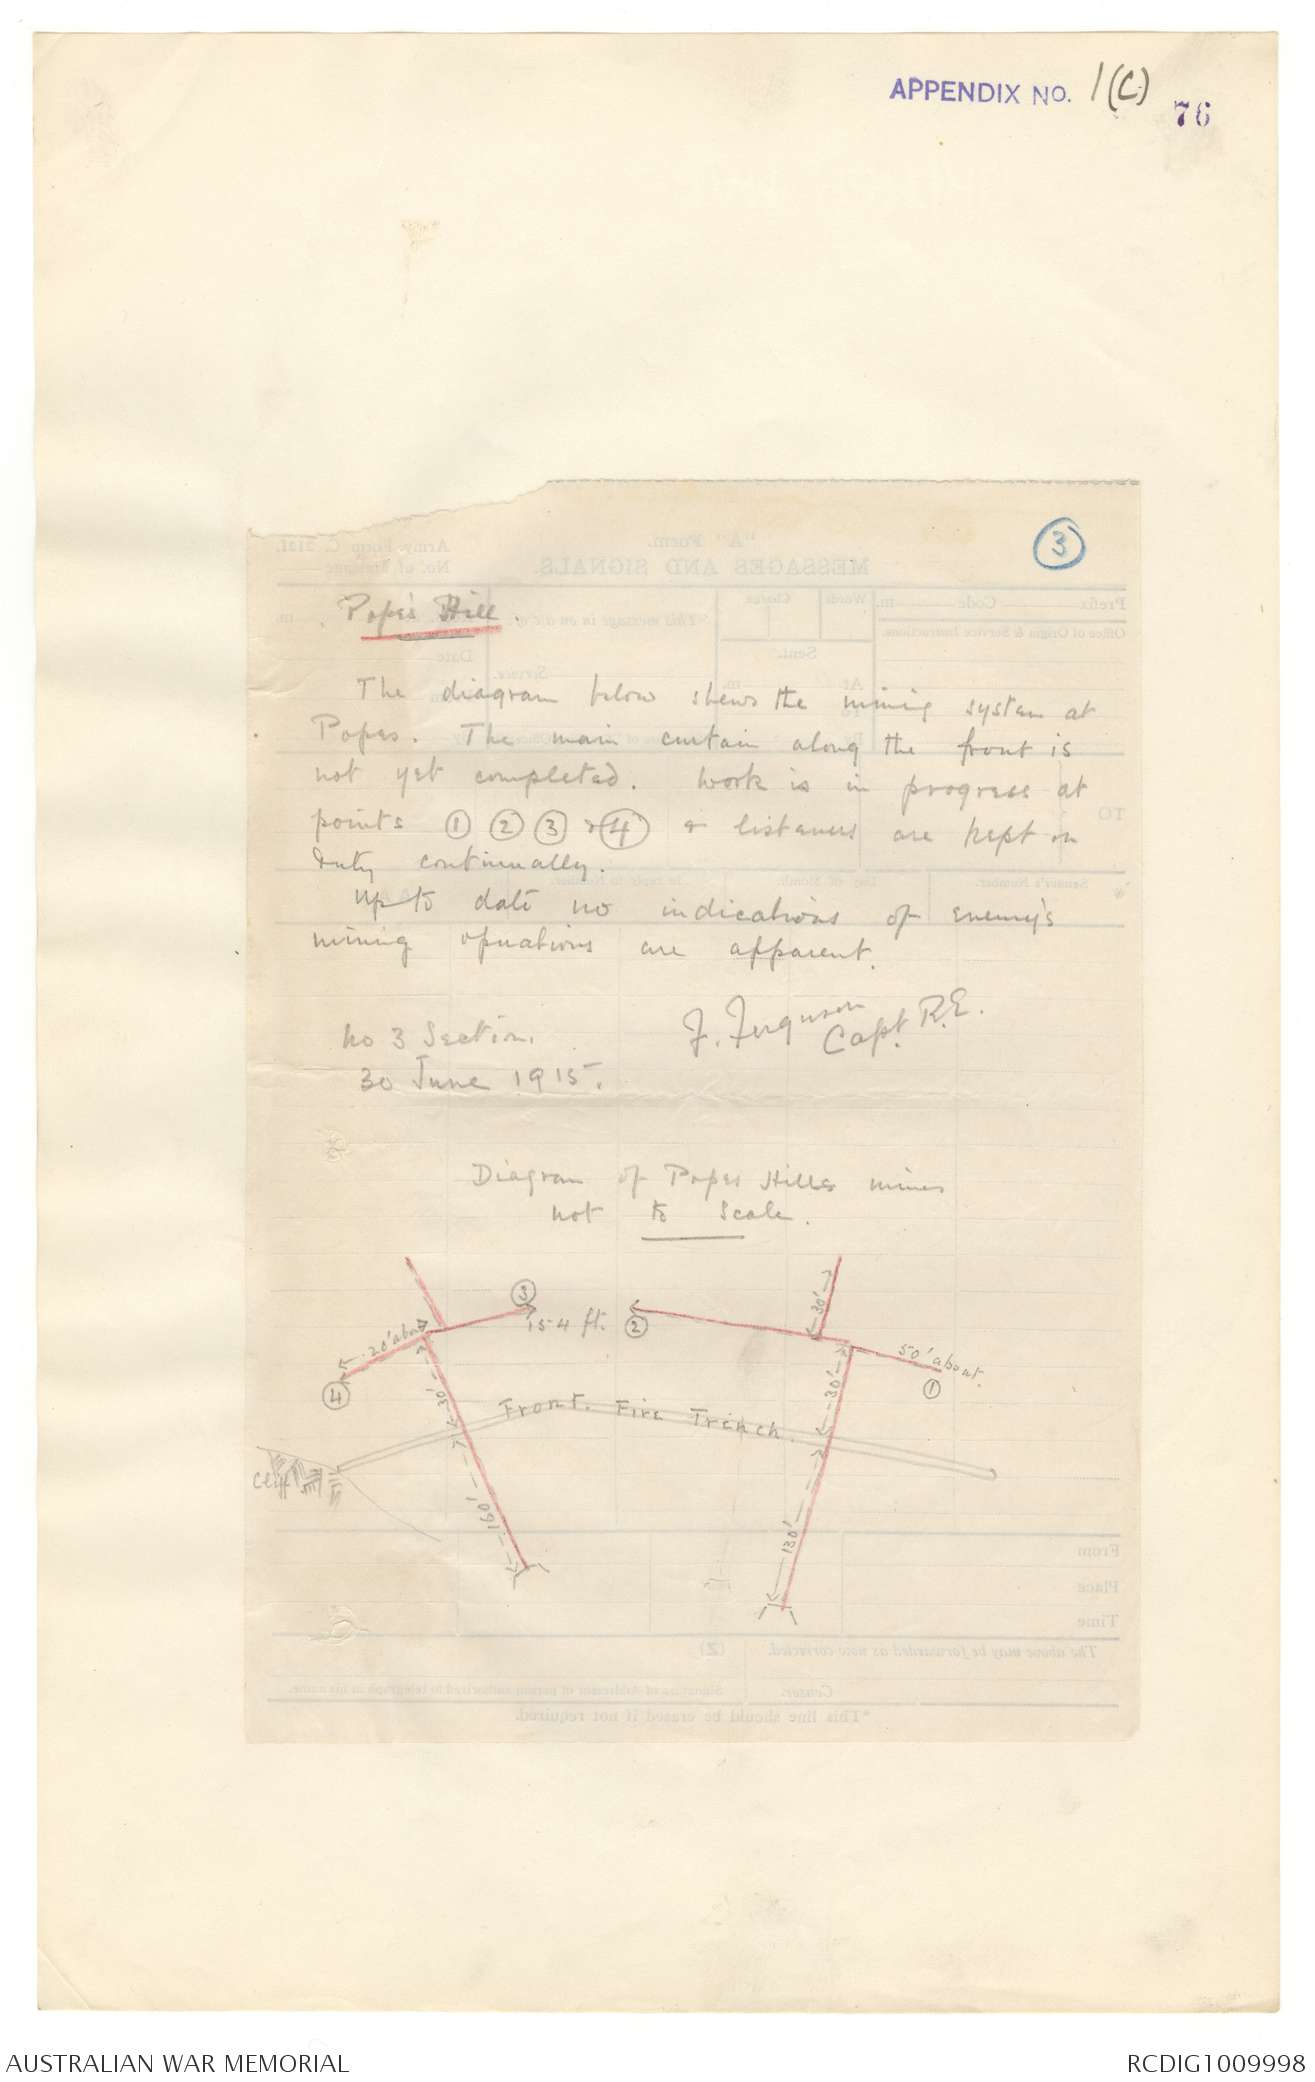 APPENDIX NO. 1(C)
76
3
Pope's Hill.
The diagram below shews the mining system at
Popes. The main curtain along the front is
not yet completed. Work is in progress at
points 1 2 3 & 4 & listeners are kept on
duty continually.
Up to date no indications of enemy's
mining operations are apparent.
F. Ferguson
Capt. R.E.
No 3 Section.
30 June 1915.
Diagram of Popes Hills mines
not to scale.
3
154 ft.
2
30'
20' about
4
30'
30'
50' about.
1
Front. Fire Trench.
Cliff
160'
130'
AUSTRALIAN WAR MEMORIAL
RCDIG1009998